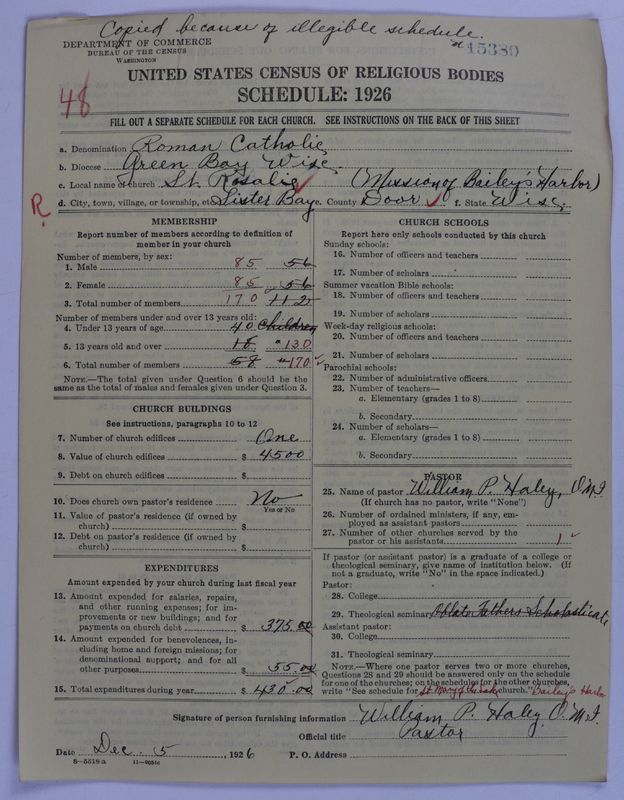 Copied because of illegible schedule.
DEPARTMENT OF COMMERCE
BUREAU OF THE CENSUS
WASHINGTON
15380
UNITED STATES CENSUS OF RELIGIOUS BODIES
SCHEDULE: 1926
48
FILL OUT A SEPARATE SCHEDULE FOR EACH CHURCH. SEE INSTRUCTIONS ON THE BACK OF THIS SHEET
a. Denomination Roman Catholic
b. Diocese Green Bay Wisc.
c. Local name of church St. Rosalie (Mission of Bailey's Harbor)
R d. City, town, village, or township, etc Sister Bay e. County Door f. State Wisc.
MEMBERSHIP
Report number of members according to definition of member in your church
Number of members, by sex:
1. Male 85 56
2. Female 85 56
3. Total number of members 170 112
Number of members under and over 13 years old:
4. Under 13 years of age 40 children
5. 13 years old and over 18 "130
6. Total number of members 58 "170
NOTE.—The total given under Question 6 should be the same as the total of males and females given under Question 3.
CHURCH BUILDINGS
See instructions, paragraphs 10 to 12
7. Number of church edifices One
8. Value of church edifices $ 4500
9. Debt on church edifices $
10. Does church own pastor's residence No
Yes or No
11. Value of pastor's residence (if owned by church) $
12. Debt on pastor's residence (if owned by church) $
EXPENDITURES
Amount expended by your church during last fiscal year
13. Amount expended for salaries, repairs, and other running expenses; for improvements or new buildings; and for payments on church debt $ 375.00
14. Amount expended for benevolences, including home and foreign missions; for denominational support; and for all other purposes $ 55.00
15. Total expenditures during year $ 430.00
CHURCH SCHOOLS
Report here only schools conducted by this church
Sunday schools:
16. Number of officers and teachers
17. Number of scholars
Summer vacation Bible schools:
18. Number of officers and teachers
19. Number of scholars
Week-day religious schools:
20. Number of officers and teachers
21. Number of scholars
Parochial schools:
22. Number of administrative officers
23. Number of teachers—
a. Elementary (grades 1 to 8)
b. Secondary
24. Number of scholars—
a. Elementary (grades 1 to 8)
b. Secondary
PASTOR
25. Name of pastor William P. Haley, O.M.I.
(If church has no pastor, write "None")
26. Number of ordained ministers, if any, employed as assistant pastors
27. Number of other churches served by the pastor or his assistants 1
If pastor (or assistant pastor) is a graduate of a college or theological seminary, give name of institution below. (If not a graduate, write "No" in the space indicated.)
Pastor:
28. College
29. Theological seminary Oblate Fathers Scholasticate
Assistant pastor:
30. College
31. Theological seminary
NOTE.—Where one pastor serves two or more churches, Questions 28 and 29 should be answered only on the schedule for one of the churches; on the schedules for the other churches, write "See schedule for St Mary of the Lake church." Bailey's Harbor
Signature of person furnishing information William P. Haley O.M.I.
Official title Pastor
Date Dec. 5, 1926 P. O. Address
8—5518 a